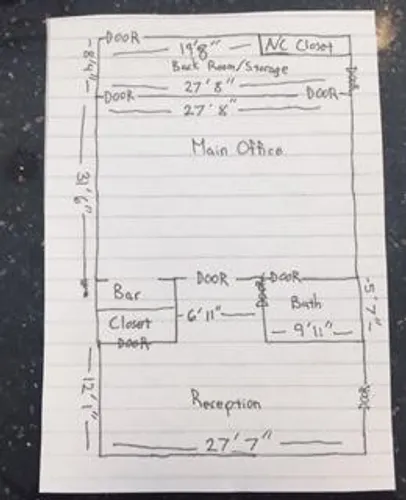 DOOR
19'8"
A/C Closet
8'4"
Back Room/Storage
DOOR
27'8"
DOOR
DOOR
27'8"
Main Office
31'6"
DOOR
DOOR
Bar
DOOR
Bath
5'7"
Closet
6'11"
9'11"
DOOR
12'1"
DOOR
Reception
27'7"